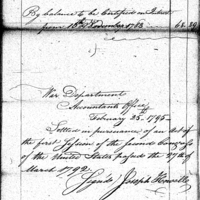 By balance to be Certified on Interest
from 16th November 1783 62.39
War Department
Accountants Office
February 25th 1795.
Settled in pursuance of an Act of
the first Session of the second Congress
of the United States passed the 27th of
March 1792.
(Signed) Joseph Howell